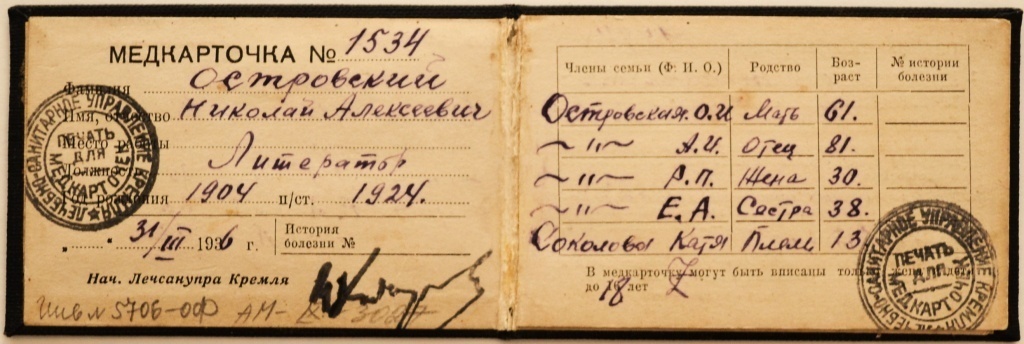 МЕДКАРТОЧКА № 1534
Фамилия Островский
Имя, отчество Николай Алексеевич
Место работы
Должность Литератор
Год рождения 1904 п/ст. 1924.
31/III 1936 г.
История болезни №
Нач. Лечсанупра Кремля
Инв № 5706-ОФ АМ-
ЛЕЧЕБНО-САНИТАРНОЕ УПРАВЛЕНИЕ КРЕМЛЯ
ПЕЧАТЬ
ДЛЯ
МЕДКАРТОЧЕК
Члены семьи (Ф. И. О.) Родство Воз-раст № истории болезни
Островская О.И Мать 61.
~"~ А.И. Отец 81.
~"~ Р.П. Жена 30.
~"~ Е.А. Сестра 38.
Соколова Катя Плем 13
В медкарточку могут быть вписаны только жена
до 18 лет
ЛЕЧЕБНО-САНИТАРНОЕ УПРАВЛЕНИЕ КРЕМЛЯ
ПЕЧАТЬ
ДЛЯ
МЕДКАРТОЧЕК